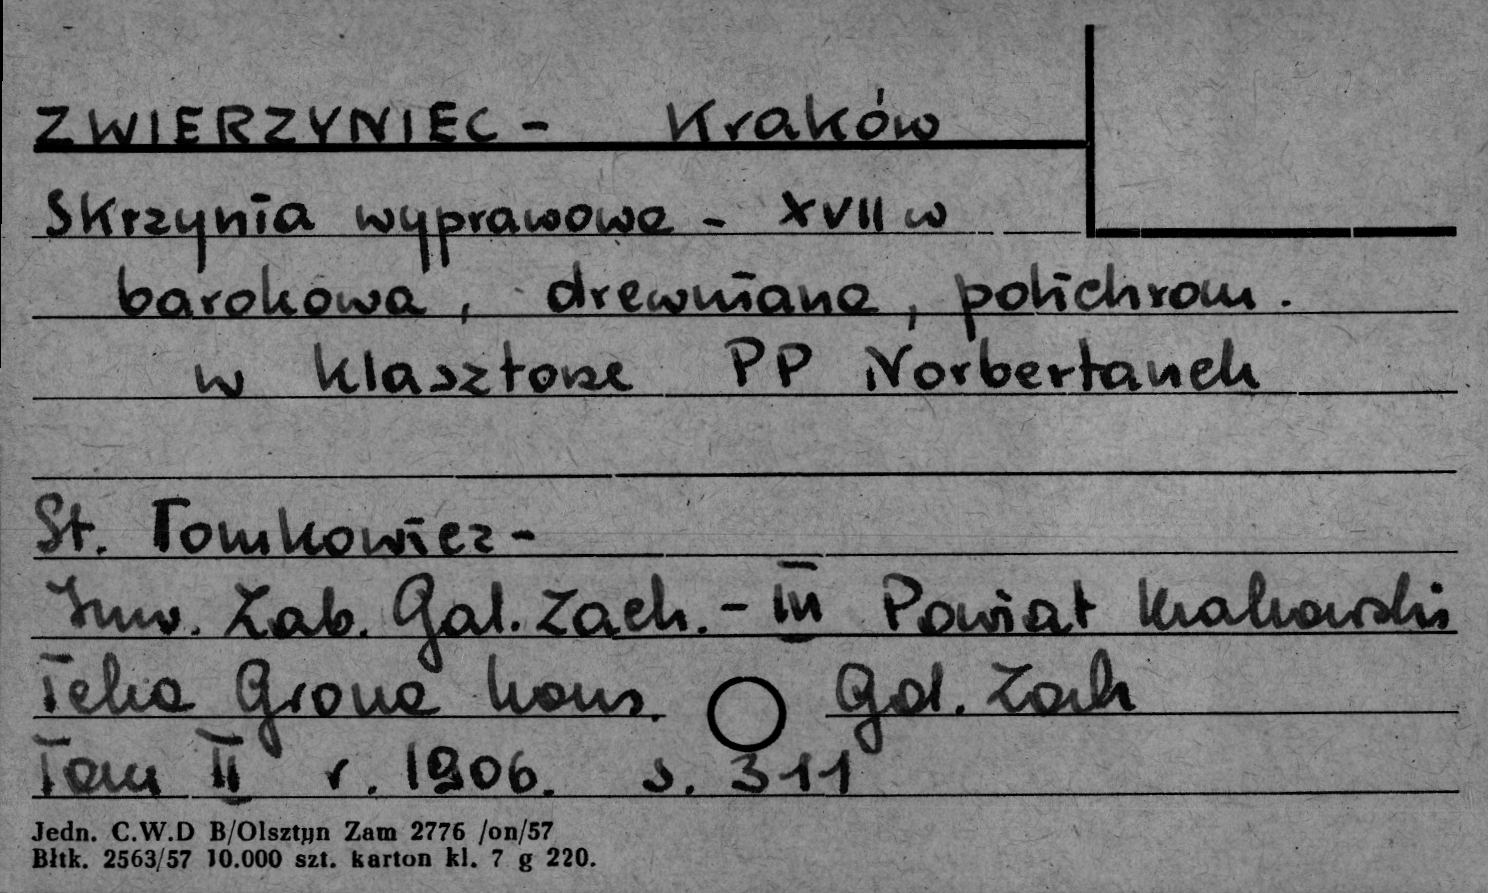 ZWIERZYNIEC - Kraków
Skrzynia wyprawowa - XVII w
barokowa, drewniana, polichrom.
w klasztorze PP Norbertanek
St. Tomkowicz -
Inw. Zab. Gal. Zach. - III Powiat Krakowski
Teka Grona kons. Gal. Zach
Tom II r. 1906. s. 311
Jedn. C.W.D B/Olsztyn Zam 2776 /on/57
Błtk. 2563/57 10.000 szt. karton kl. 7 g 220.